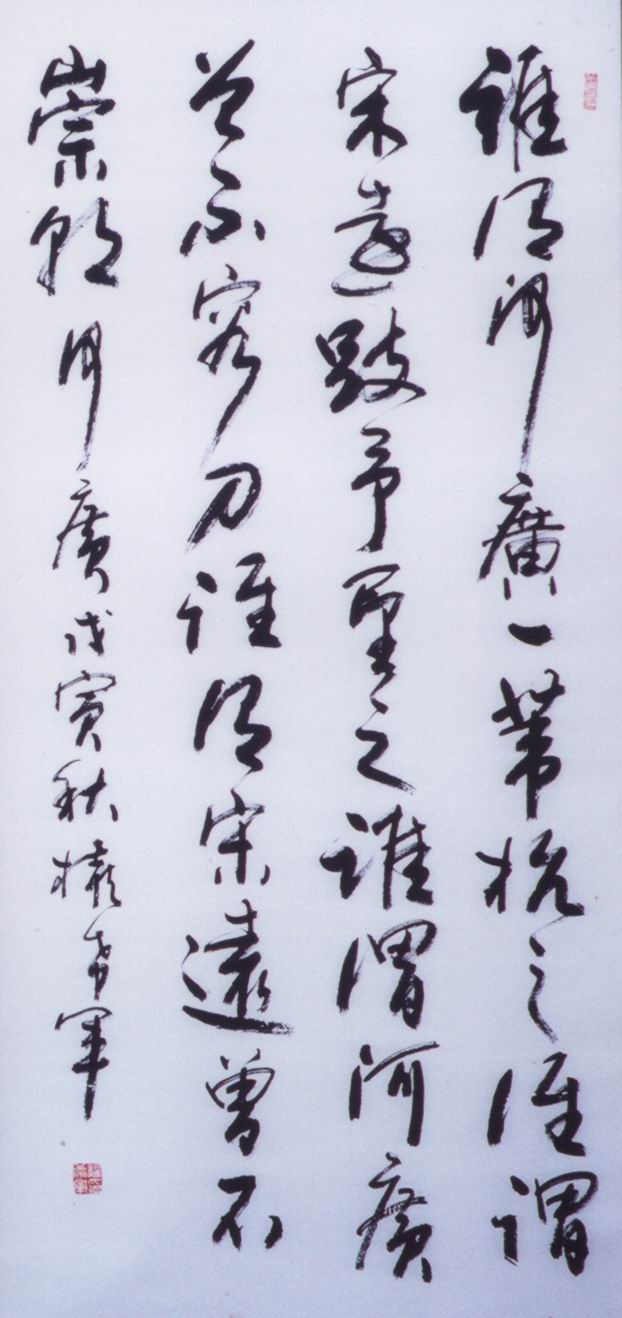 誰謂河廣一葦杭之誰謂
宋遠跂予望之誰謂河廣
曾不容刀誰謂宋遠曾不
崇朝河廣戊寅秋希軍